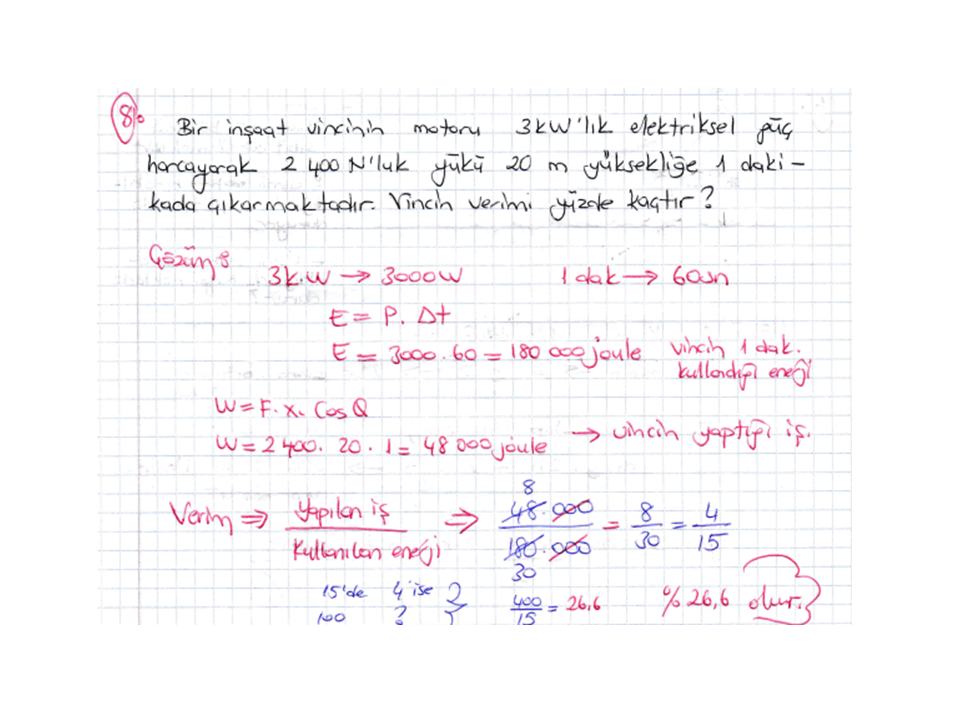 8. Bir inşaat vincinin motoru 3kW'lık elektriksel güç
harcayarak 2 400 N'luk yükü 20 m yüksekliğe 1 daki-
kada çıkarmaktadır. Vincin verimi yüzde kaçtır?
Çözüm:
3k.W → 3000W 1 dak → 60sn
E = P. Δt
E = 3000.60 = 180 000 joule vincin 1 dak.
kullandığı enerji
W = F. x. Cos Q
W = 2 400. 20. 1 = 48 000 joule → vincin yaptığı iş.
8
Verim ⇒ Yapılan iş / Kullanılan enerji ⇒ 48.000 / 180.000 = 8/30 = 4/15
30
15'de 4 ise
100 ?
400/15 = 26,6 % 26,6 olur.